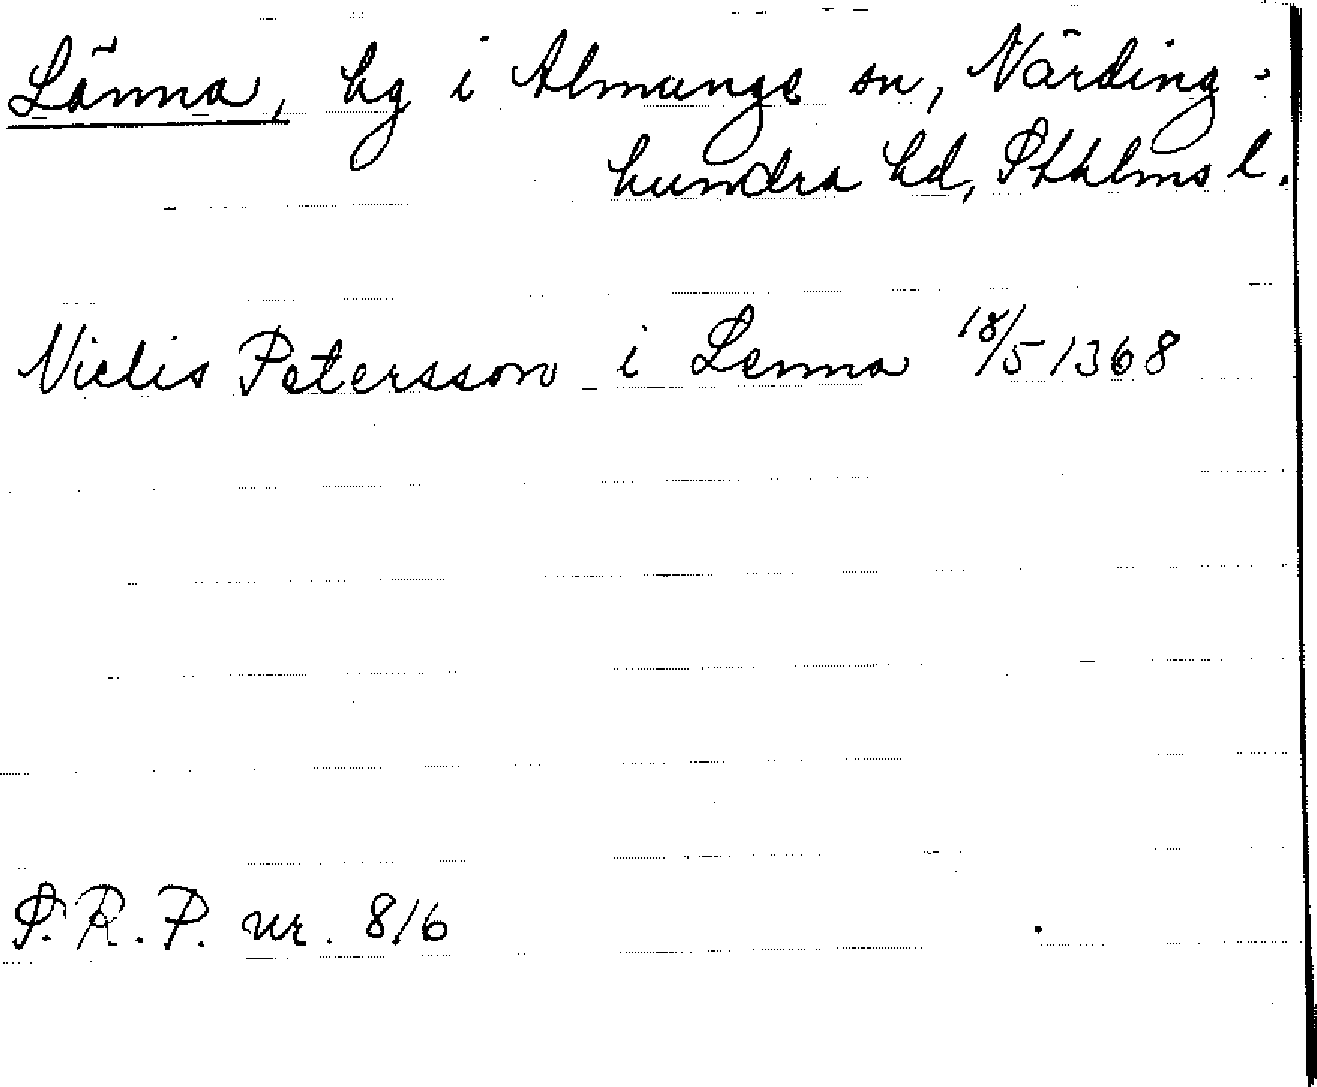 Länna, bg i Almunge sn, Närding-
hundra hd, Sthlms l.
Niclis Petersson i Lenna 18/5 1368
S.R.P. nr. 816